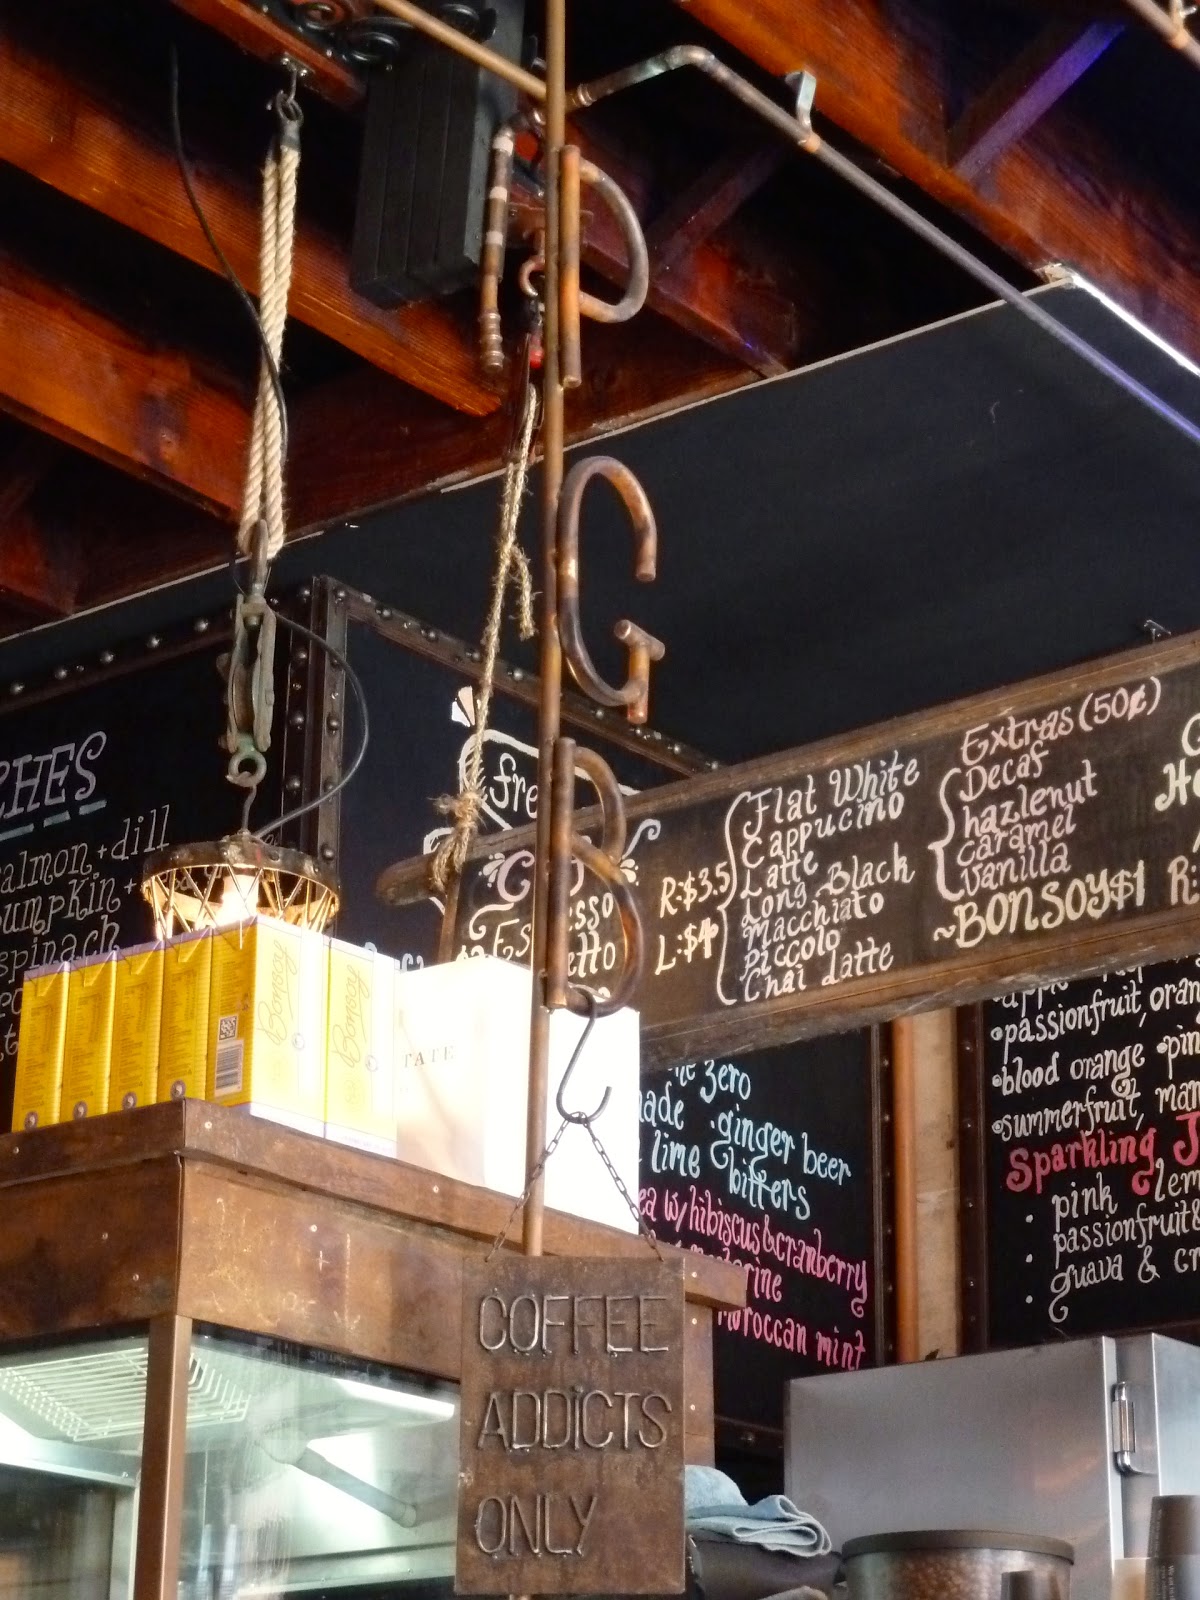 P
G
B
CHES
salmon + dill
pumpkin +
spinach
fre
Espresso
R:$3.5
L:$4
Flat White
Cappucino
Latte
Long Black
Macchiato
Piccolo
Chai Latte
Extras (50¢)
Decaf
hazlenut
caramel
vanilla
~BONSOY $1
R:
Bonsoy
Bonsoy
TATE
zero
ade · ginger beer
lime bitters
ea w/ hibiscus & cranberry
moroccan mint
• passionfruit, oran
• blood orange • pin
• summerfruit, man
Sparkling J
• pink lem
• passionfruit &
• guava &
COFFEE
ADDiCTS
ONLY